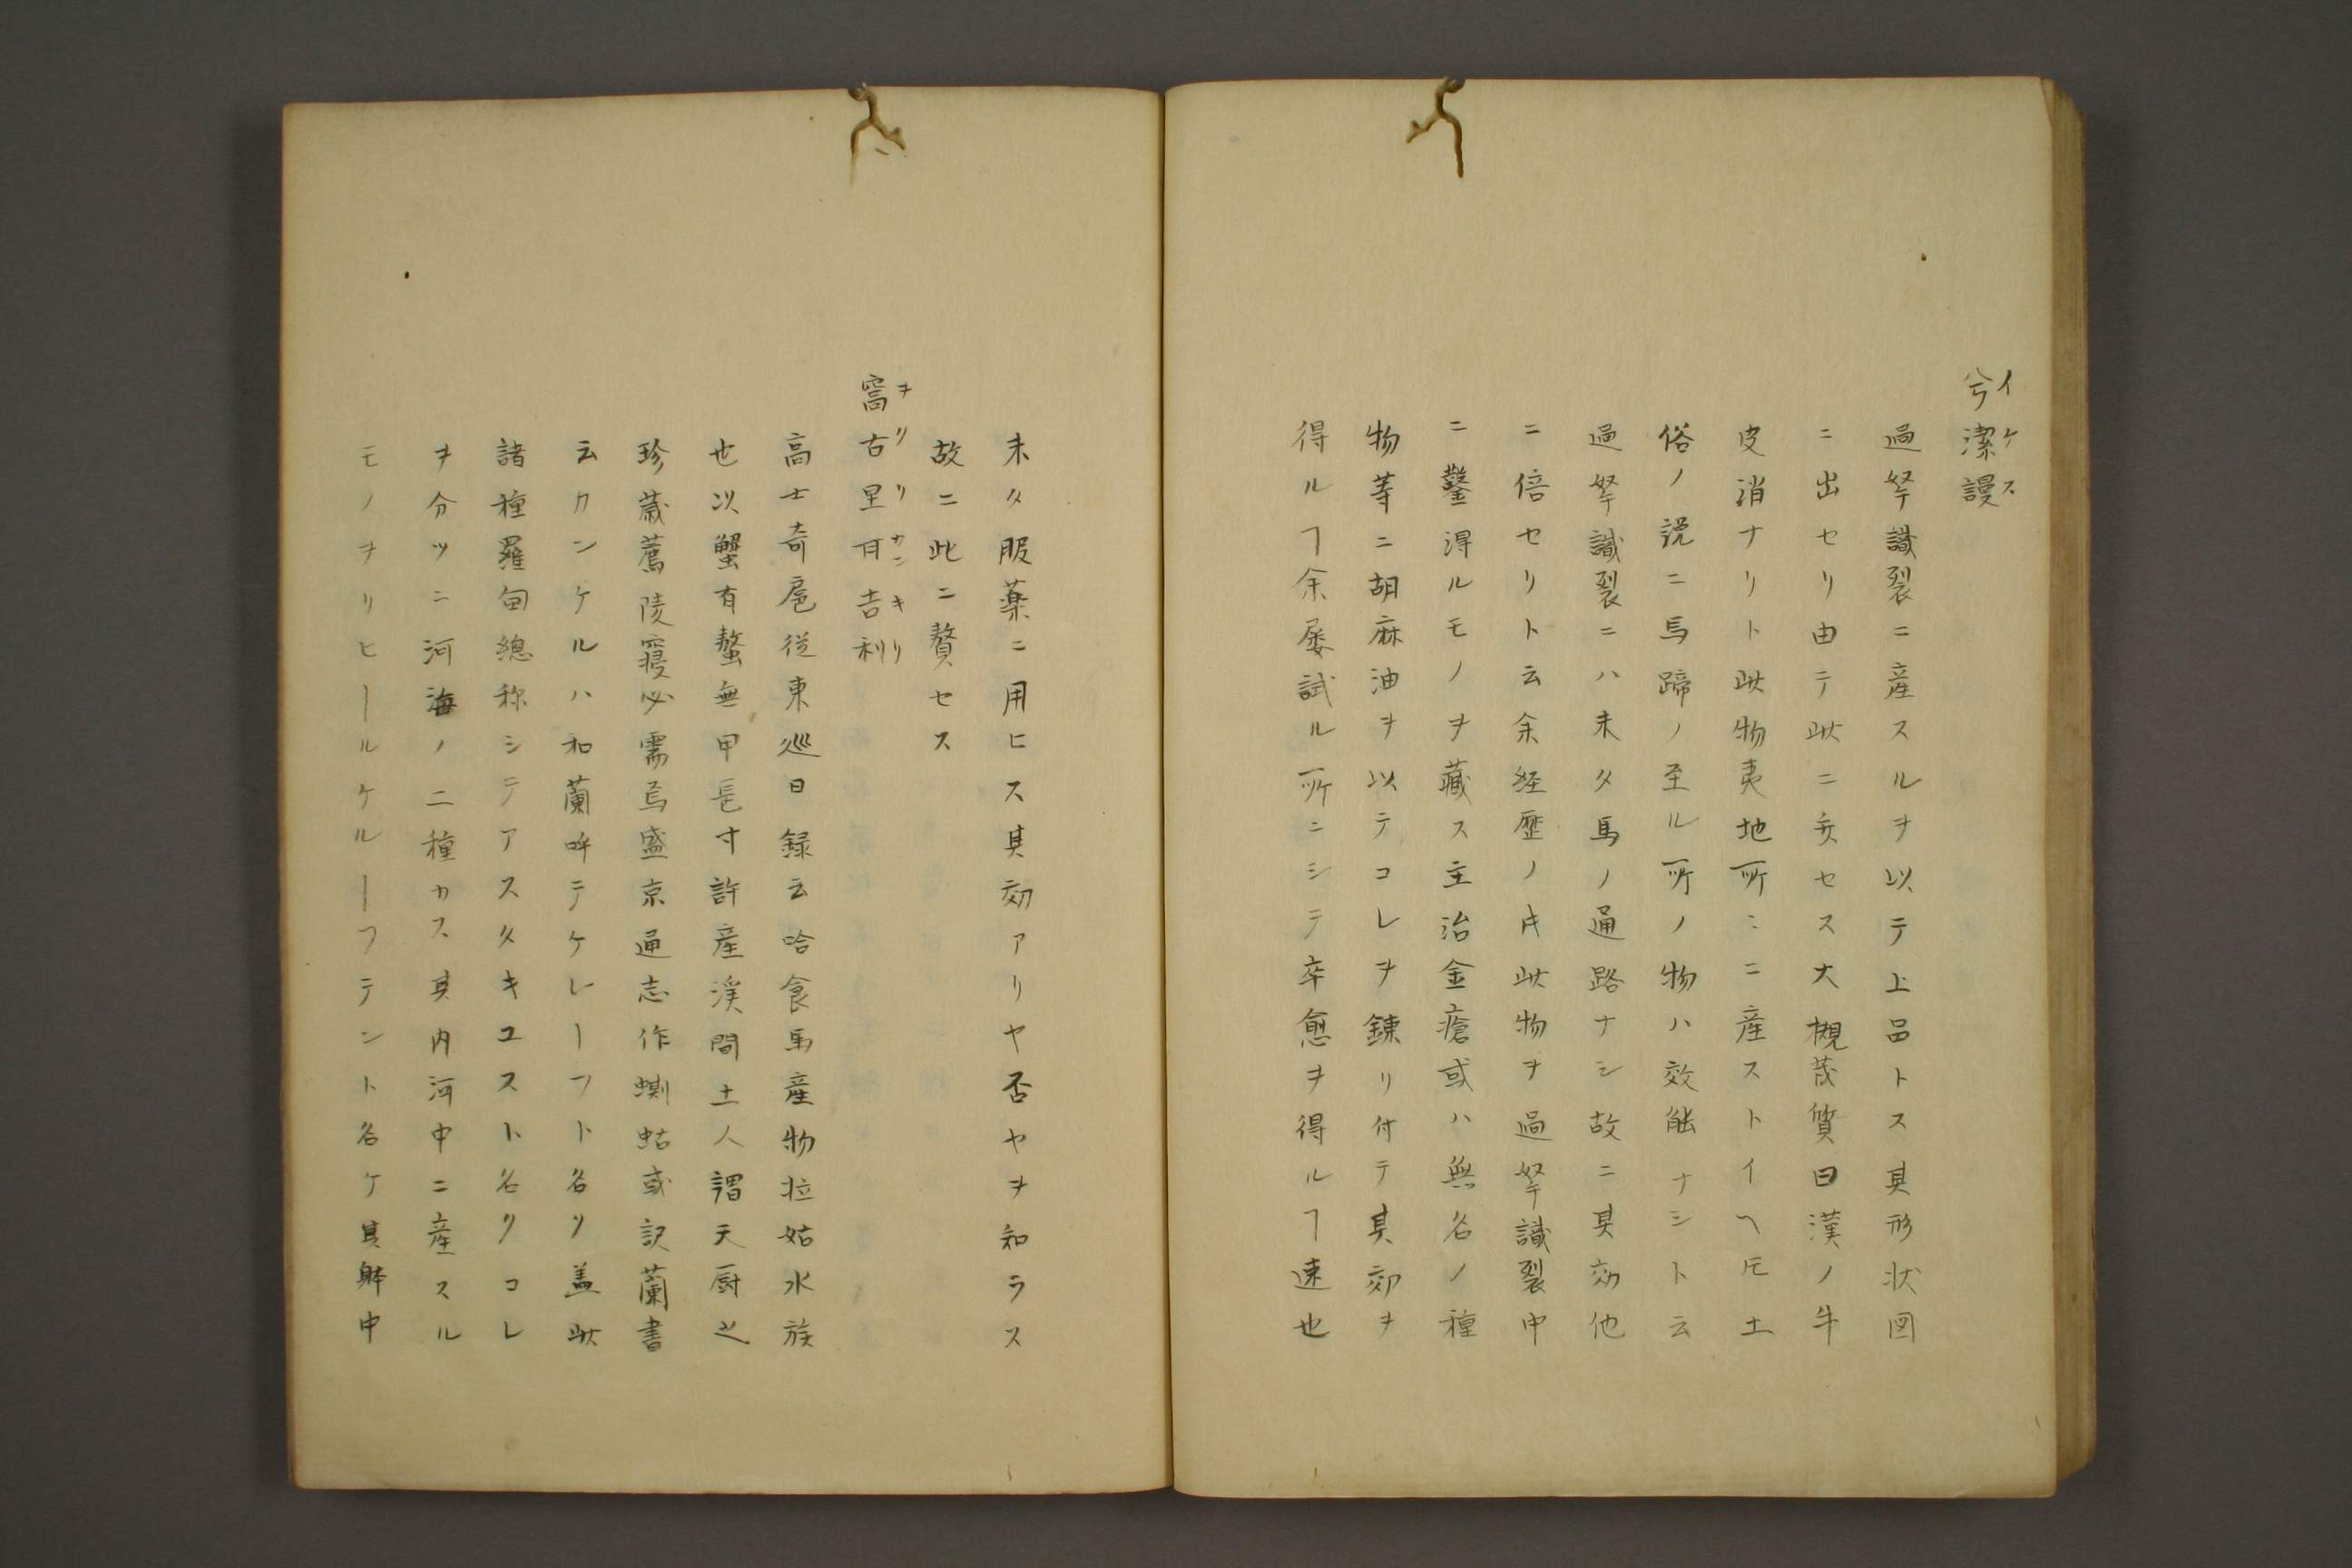 兮潔謾
イケス
過拏識裂ニ産スルヲ以テ上品トス其形状図
ニ出セリ由テ此ニ爻セス大槻茂質曰漢ノ牛
皮消ナリト此物夷地所〻ニ産ストイヘ𪜈土
俗ノ説ニ馬蹄ノ至ル所ノ物ハ效能ナシト云
過拏識裂ニハ未タ馬ノ通路ナシ故ニ其効他
ニ倍セリト云余経歴ノ片此物ヲ過拏識裂中
ニ鑿得ルモノヲ藏ス主治金瘡或ハ無名ノ種
物等ニ胡麻油ヲ以テコレヲ錬リ付テ其効ヲ
得ルヿ余屡試ル所ニシテ卒愈ヲ得ルヿ速也
未タ服薬ニ用ヒス其効アリヤ否ヤヲ和ラス
故ニ此ニ贅セス
窩古里甘吉利
ヲリリカンキリ
高士奇扈従東巡日録云哈食馬産物拉姑水族
也以蟹有螯無甲長寸許産渓間土人謂天厨之
珍歳薦陵寝必需焉盛京通志作蝲蛄或訳蘭書
云カンケルハ和蘭呼テケレーフト名ク盖此
諸種羅甸總称シテアスタキユスト名クコレ
ヲ分ツニ河海ノ二種カス其内河中ニ産スル
モノヲリヒールケルーフテント名ケ其躰中